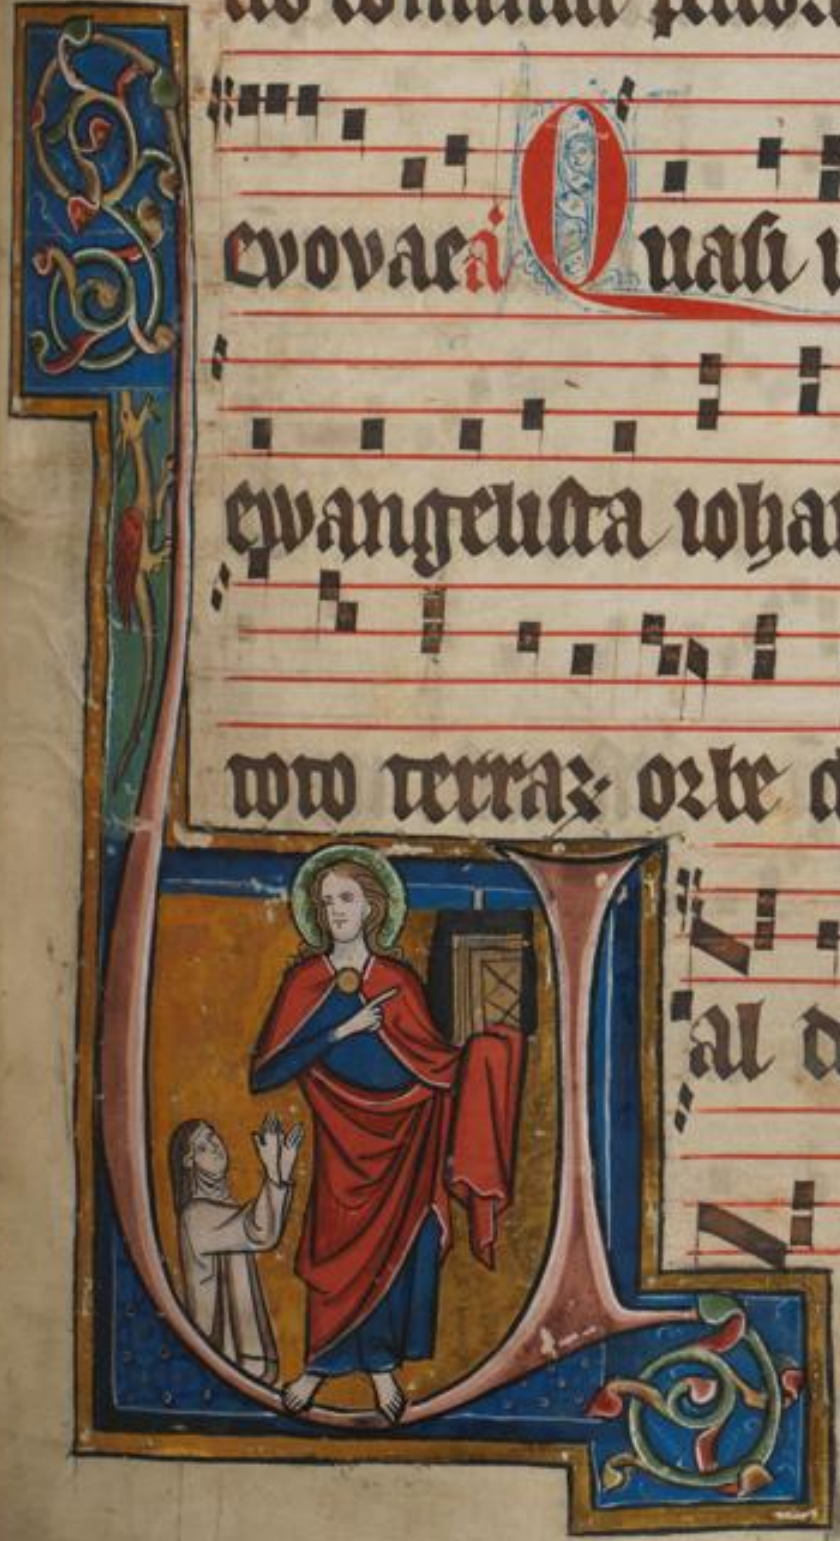 evovaea Quasi
ewangelista iohan
toto terraꝝ orbe
Val